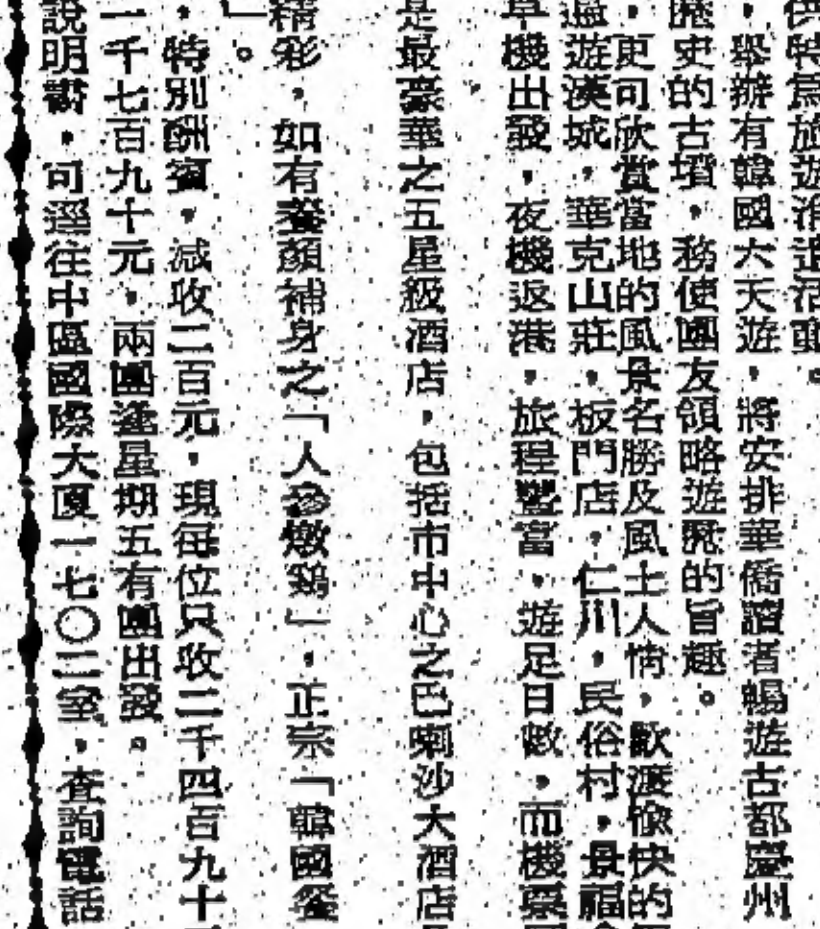 供特爲旅遊消遣活動。
，舉辦有韓國六天遊，將安排華僑讀者暢遊古都慶州
歷史的古墳，務使團友領略遊歷的旨趣。
更可欣賞當地的風景名勝及風土人情，歡渡愉快的
遊漢城，華克山莊，板門店，仁川，民俗村，景福
早機出發，夜機返港，旅程豐富，遊足日數，而機票
是最豪華之五星級酒店，包括市中心之巴喇沙大酒店
精彩，如有養顏補身之「人參燉鷄」，正宗「韓國餐
」。
，特別酬賓，減收二百元，現每位只收二千四百九十
一千七百九十元，兩團逢星期五有團出發。
說明書，可逕往中區國際大厦一七〇二室，查詢電話